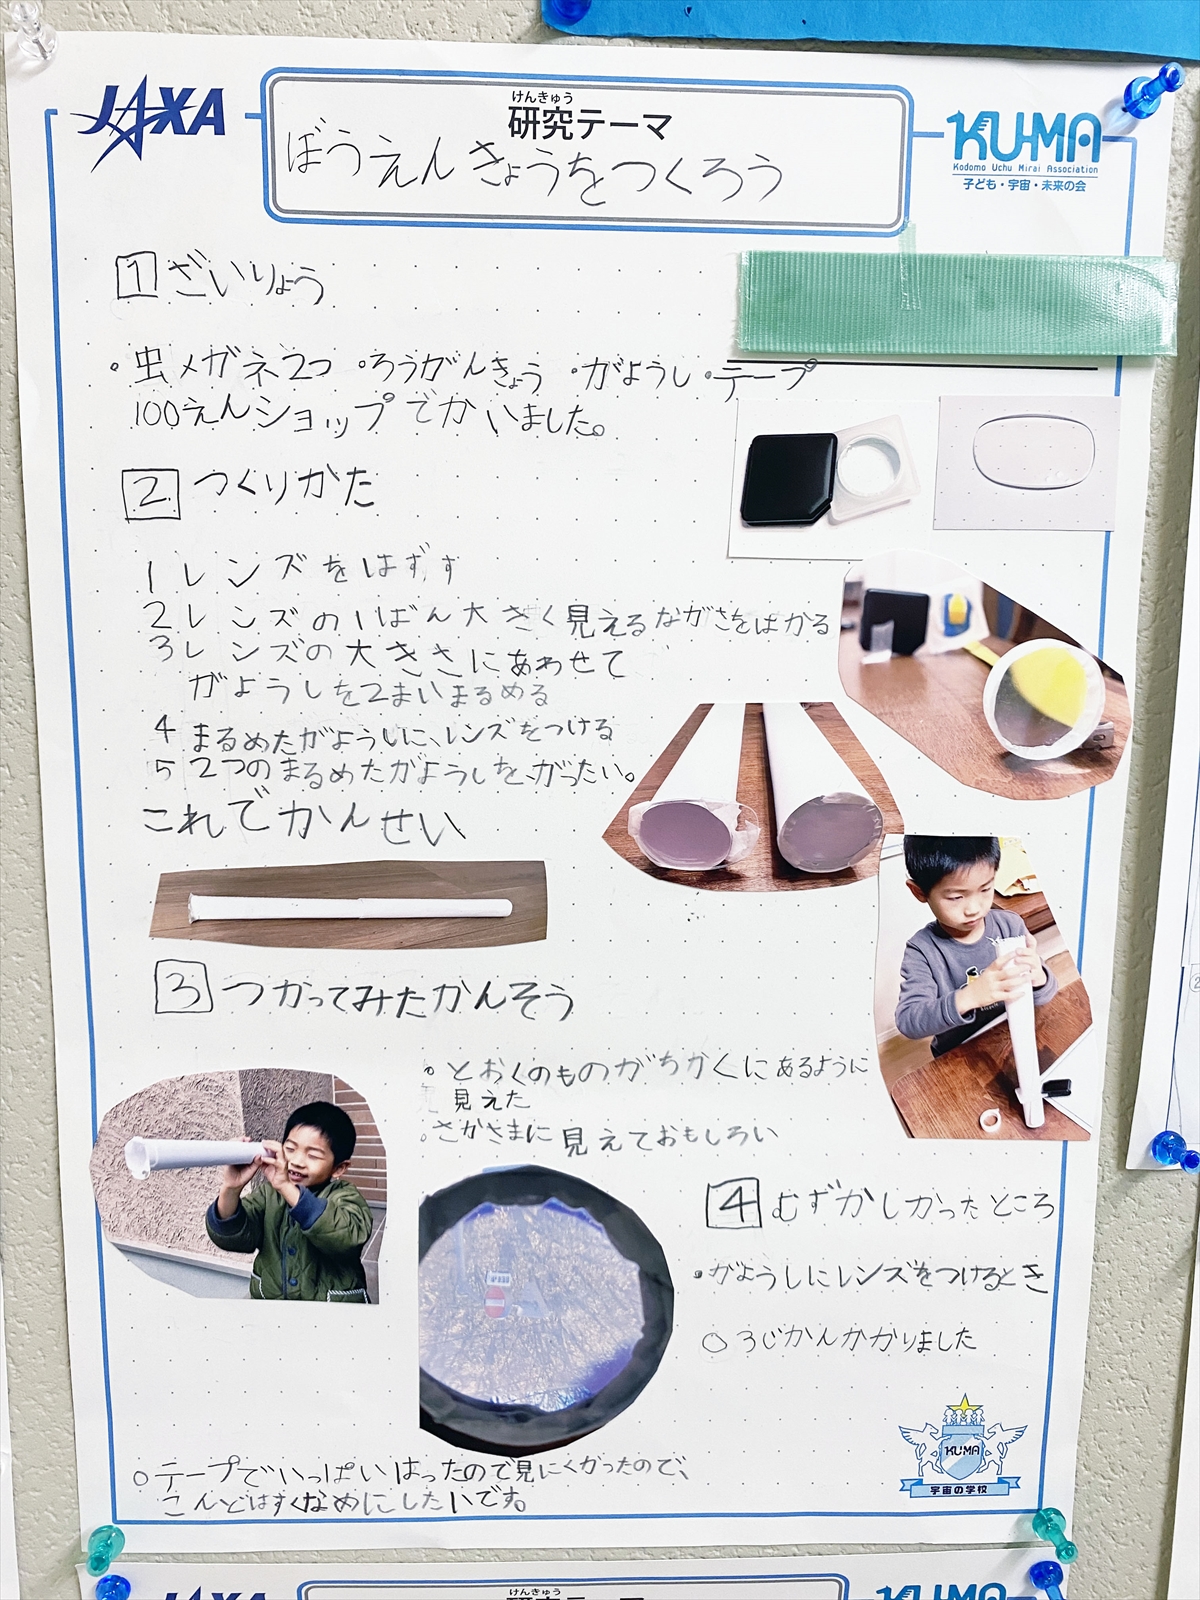 JAXA
けんきゅう
研究テーマ
ぼうえんきょうをつくろう
KU-MA
Kodomo Uchu Mirai Association
子ども・宇宙・未来の会
1 ざいりょう
・虫メガネ2つ ・ろうがんきょう ・がようし ・テープ
100えんショップでかいました。
2 つくりかた
1 レンズをはずす
2 レンズの1ばん大きく見えるながさをはかる
3 レンズの大きさにあわせて
がようしを2まいまるめる
4 まるめたがようしに、レンズをつける
5 2つのまるめたがようしを、がったい。
これでかんせい
3 つかってみたかんそう
・とおくのものがちかくにあるように
見えた
・さかさまに見えておもしろい
4 むずかしかったところ
・がようしにレンズをつけるとき
○ 3じかんかかりました
○ テープでいっぱいはったので見にくかったので、
こんどはすくなめにしたいです。
KU-MA
宇宙の学校
けんきゅう